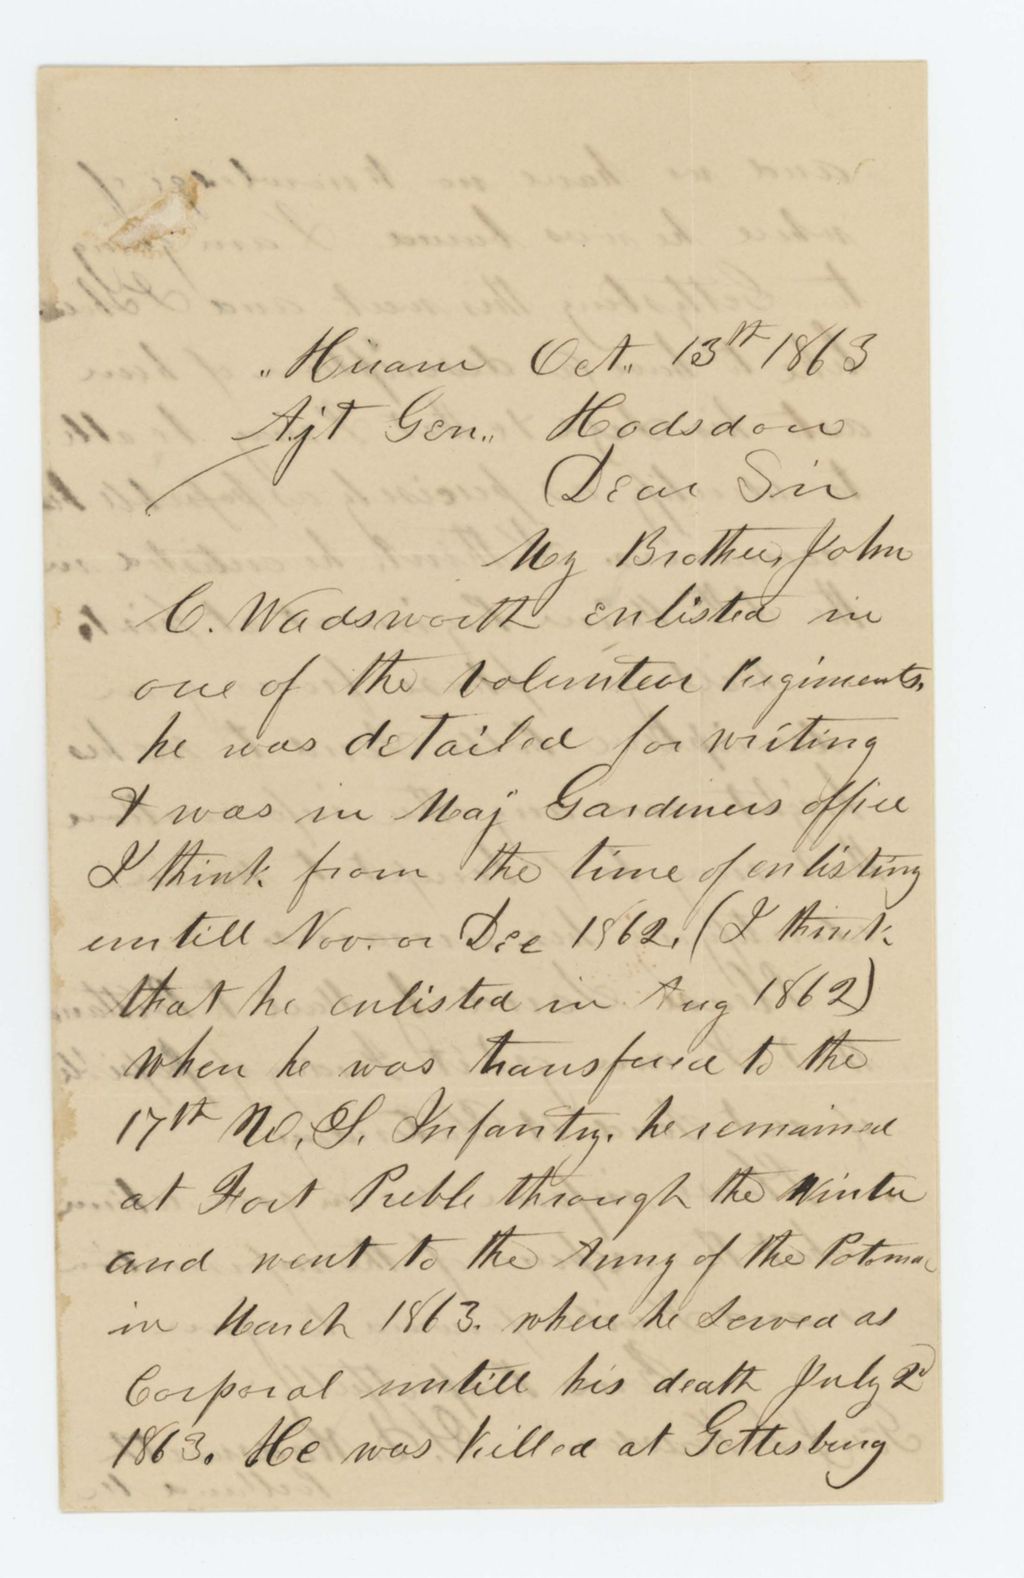 „Hiram Oct„ 13th 1863
Ajt Gen„ Hodsdon
Dear Sir
My Brother, John
C. Wadsworth enlisted in
one of the Volunteer Regiments,
he was detailed for writing
& was in Maj Gardiners office
I think from the time of enlisting
untill Nov. or Dec 1862, (I think
that he enlisted in Aug 1862)
when he was transfered to the
17th U. S. Infantry. he remained
at Fort Preble through the Winter
and went to the Army of the Potomac
in March 1863. where he served as
Corporal untill his death July 2d
1863. He was killed at Gettesburg